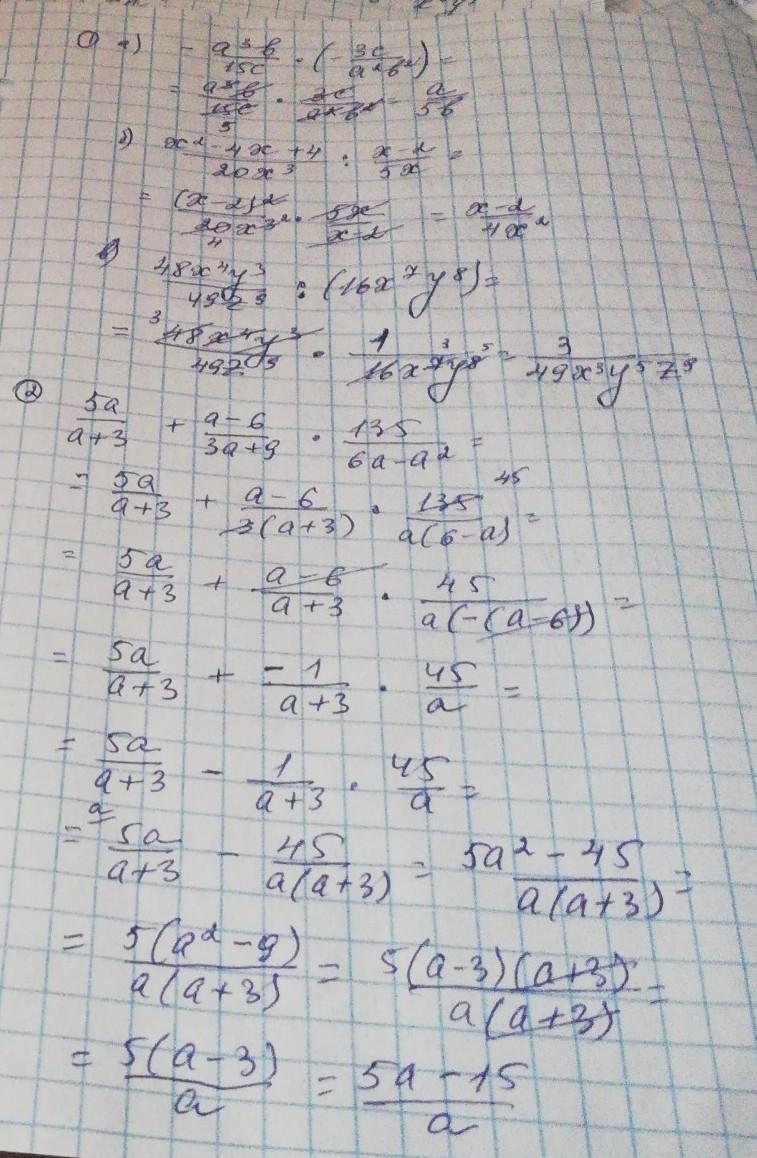 ① а) - a³b/15c · (- 3c/a²b²) =
= a³b/15c · 3c/a²b² = a/5b
5
б) x² - 4x + 4/20x³ : x-2/5x =
= (x-2)²/20x³ · 5x/x-2 = x-2/4x²
4
в) 48x⁴y³/49z⁹ : (16x⁷y⁸) =
= 48x⁴y³/49z⁹ · 1/16x⁷y⁸ = 3/49x³y⁵z⁹
② 5a/a+3 + a-6/3a+9 · 135/6a-a² =
= 5a/a+3 + a-6/3(a+3) · 135/a(6-a) =
45
= 5a/a+3 + a-6/a+3 · 45/a(-(a-6)) =
= 5a/a+3 + -1/a+3 · 45/a =
= 5a/a+3 - 1/a+3 · 45/a =
= a/ 5a/a+3 - 45/a(a+3) = 5a² - 45/a(a+3) =
= 5(a²-9)/a(a+3) = 5(a-3)(a+3)/a(a+3) =
= 5(a-3)/a = 5a-15/a